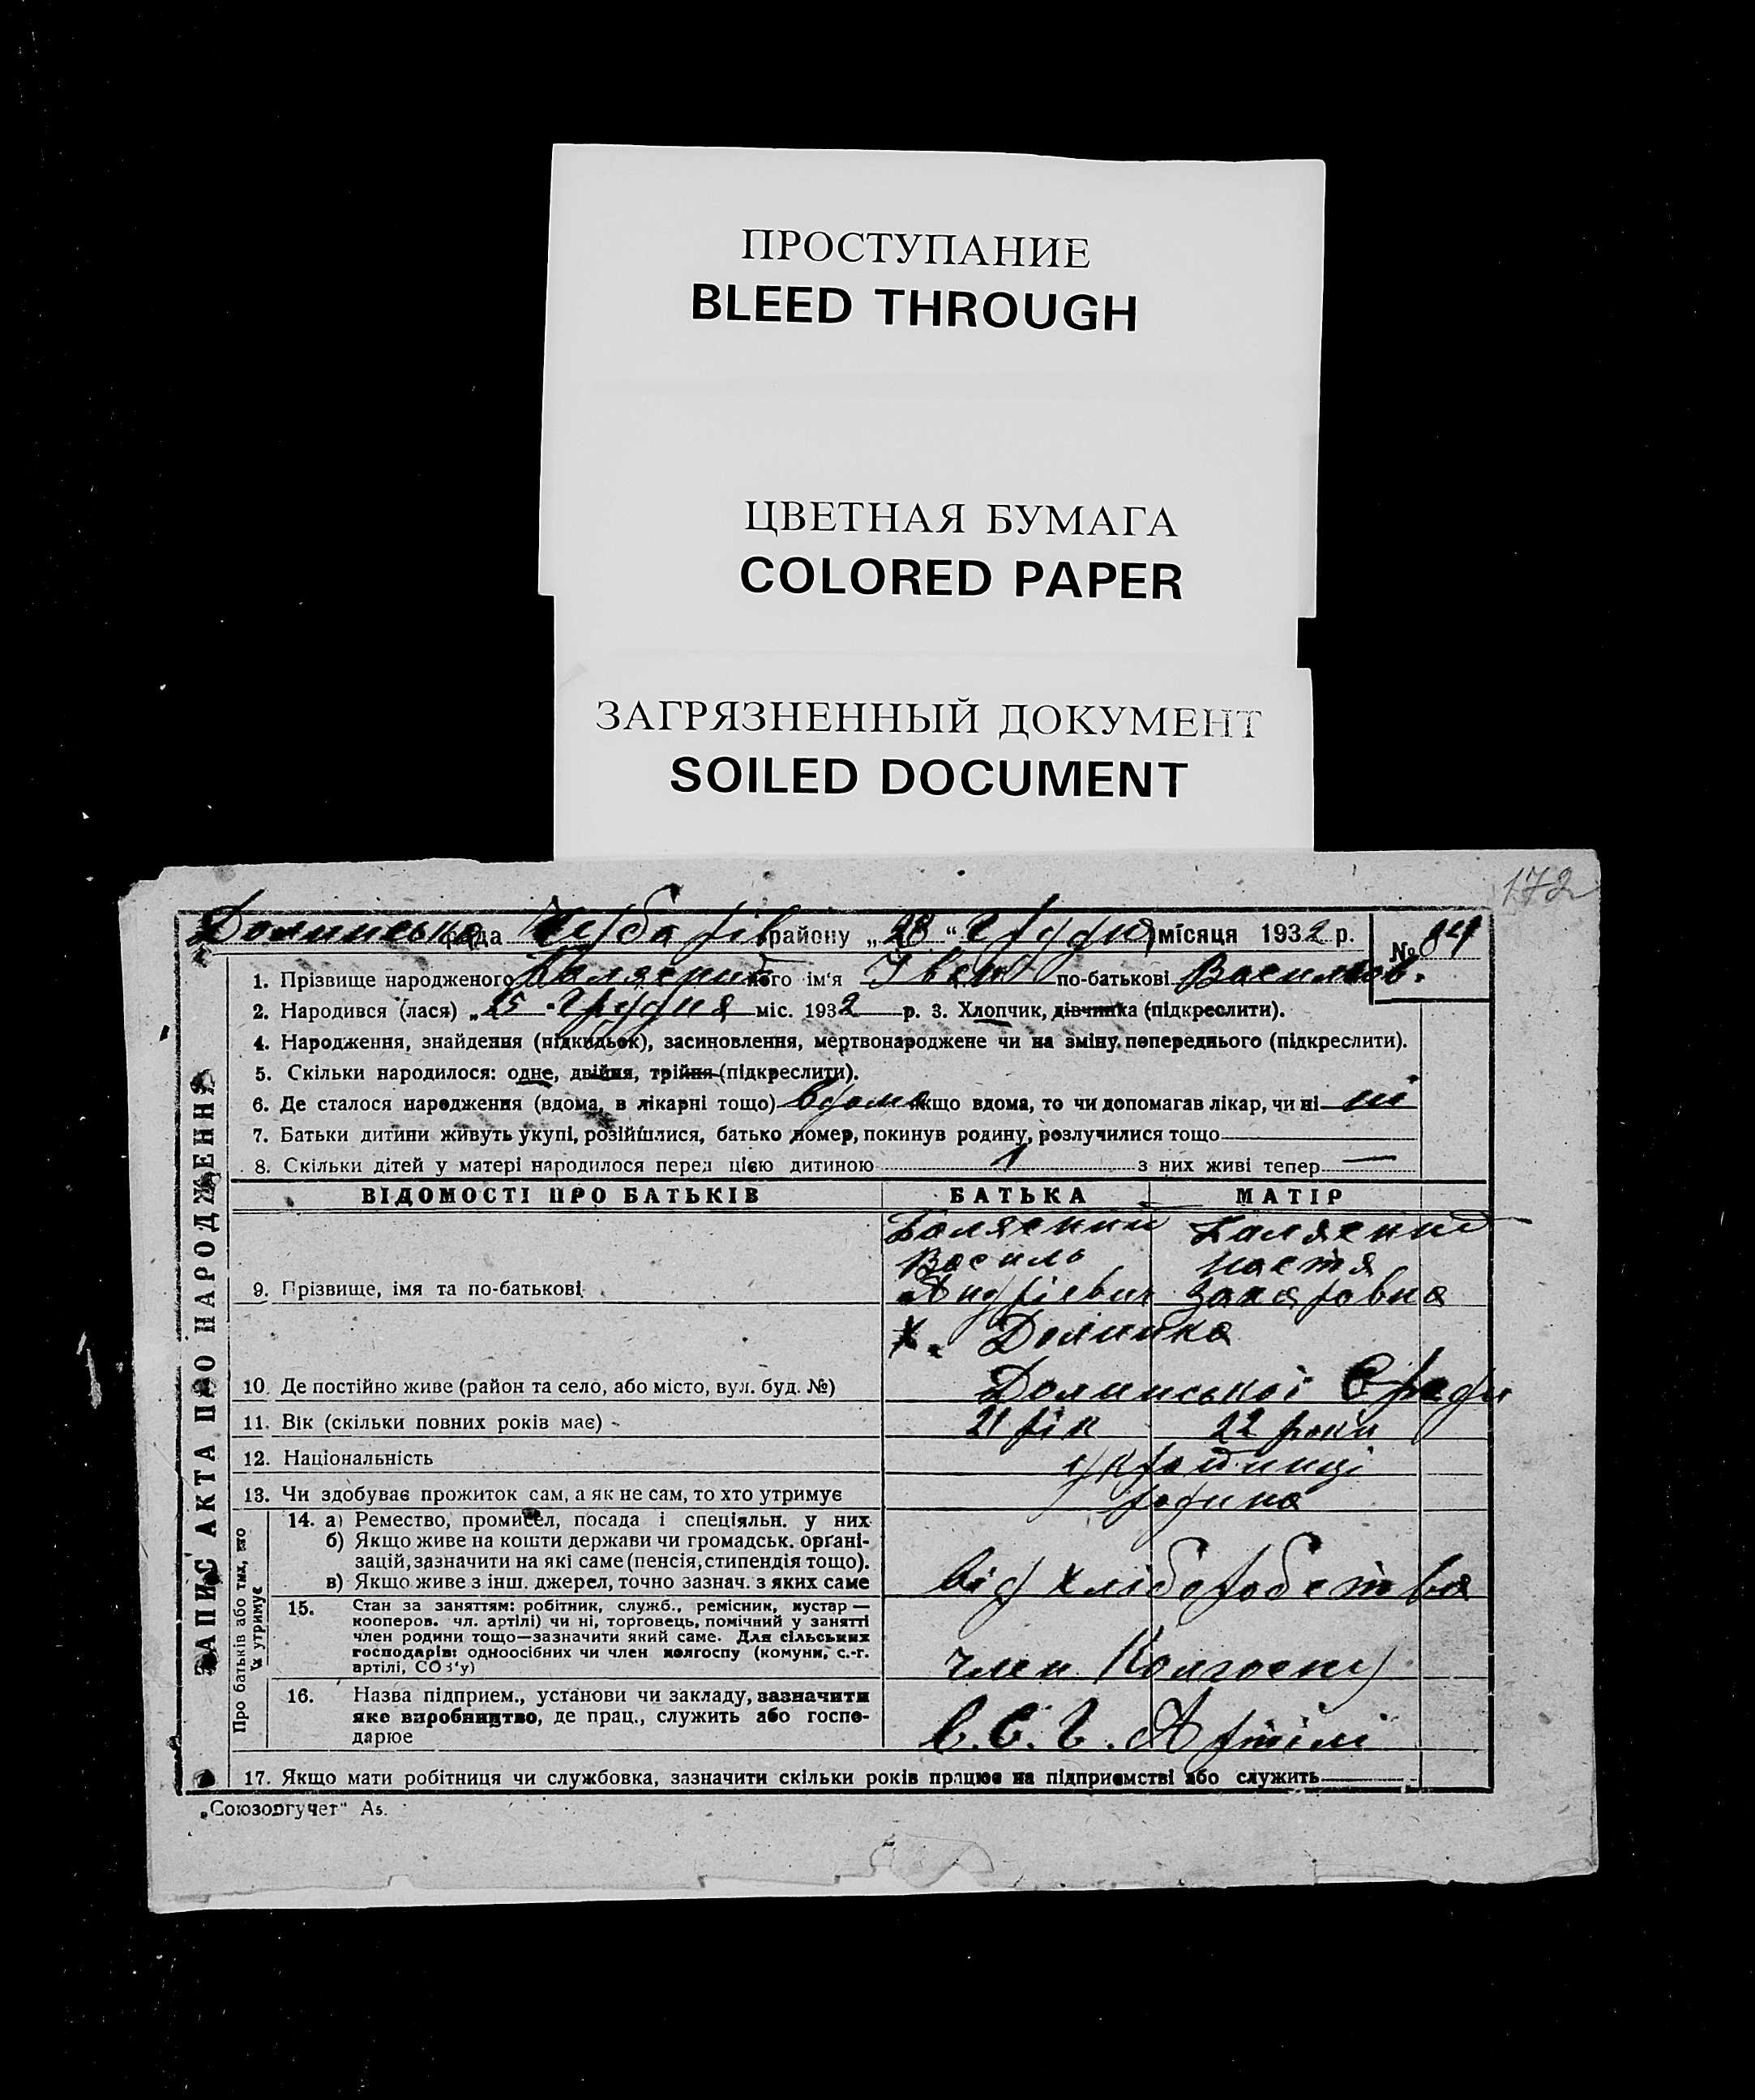 ПРОСТУПАНИЕ
BLEED THROUGH
ЦВЕТНАЯ БУМАГА
COLORED PAPER
ЗАГРЯЗНЕННЫЙ ДОКУМЕНТ
SOILED DOCUMENT
172
Долинська рада Чубарів району „28“ Грудня місяця 1932 р. № 84
1. Прізвище народженого його ім‘я Іван по-батькові Васильов.
2. Народився (лася) „25 Грудня міс. 1932 р. 3. Хлопчик, дівчинка (підкреслити).
4. Народження, знайдення (підкидьок), засиновлення, мертвонароджене чи на зміну попереднього (підкреслити).
5. Скільки народилося: одне, двійня, трійня (підкреслити).
6. Де сталося народження (вдома, в лікарні тощо) вдома якщо вдома, то чи допомагав лікар, чи ні ні
7. Батьки дитини живуть укупі, розійшлися, батько помер, покинув родину, розлучилися тощо
8. Скільки дітей у матері народилося перед цією дитиною 1 з них живі тепер —
ЗАПИС АКТА ПРО НАРОДЖЕННЯ
ВІДОМОСТІ ПРО БАТЬКІВ БАТЬКА МАТІР
Балясний Балясний
Василь Настя
9. Прізвище, імя та по-батькові Андрієвич Захаровна
х. Долинка
10. Де постійно живе (район та село, або місто, вул. буд. №) Долинської С ради
11. Вік (скільки повних років має) 21 рік 22 роки
12. Національність українці
13. Чи здобуває прожиток сам, а як не сам, то хто утримує родина
Про батьків або тих, хто їх утримує
14. а) Ремество, промисел, посада і спеціяльн. у них
б) Якщо живе на кошти держави чи громадськ. орґані-
зацій, зазначити на які саме (пенсія, стипендія тощо).
в) Якщо живе з інш. джерел, точно зазнач. з яких саме від хліборобства
15. Стан за заняттям: робітник, служб., ремісник, кустар —
кооперов. чл. артілі) чи ні, торговець, помічний у занятті
член родини тощо—зазначити який саме. Для сільських
господарів: одноосібних чи член колгоспу (комуни, с.-г.
артілі, СОЗ‘у) член Колгоспу
16. Назва підприєм., установи чи закладу, зазначити
яке виробництво, де прац., служить або госпо-
дарює в. С. Г. Артілі
17. Якщо мати робітниця чи службовка, зазначити скільки років працює на підприємстві або служить
„Союзоргучет“ А5.